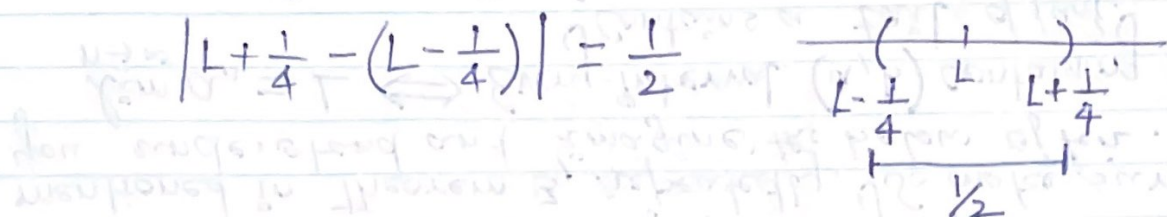 |L + 1/4 - (L - 1/4)| = 1/2
( L )
L - 1/4 L + 1/4
1/2